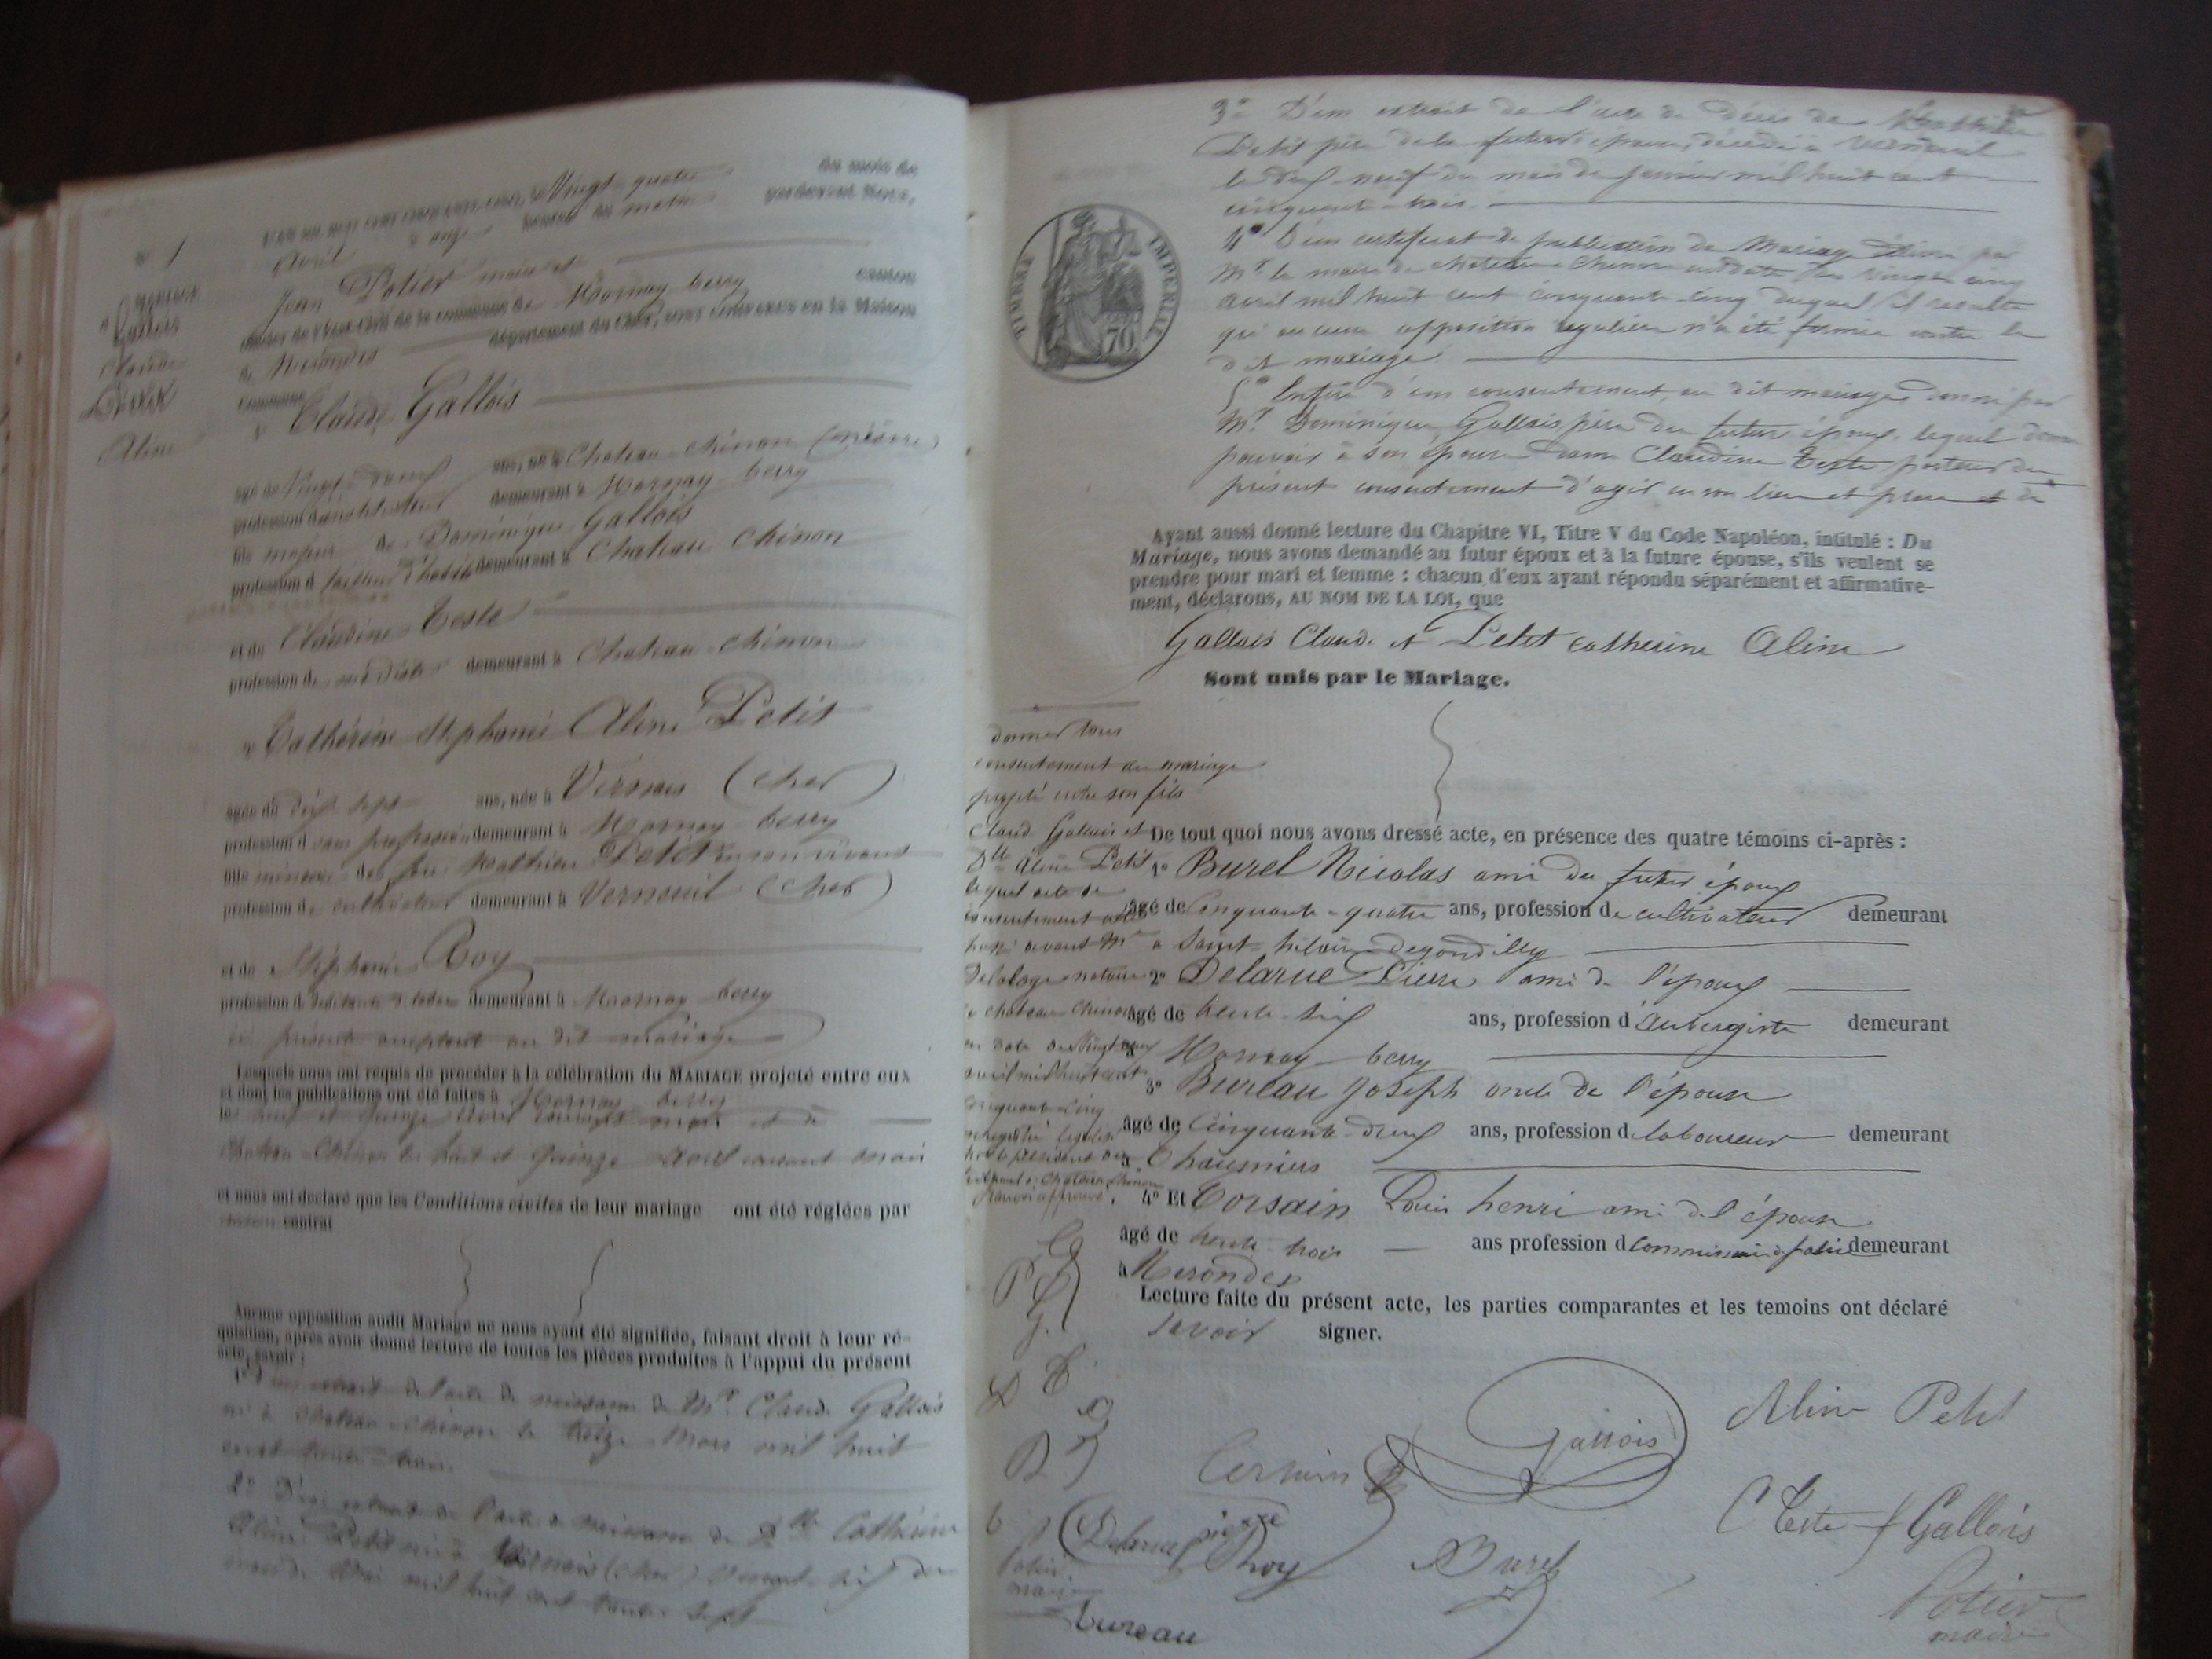 N° 1
Mariage
Gallois
Claude
Petit
Aline
L'an mil huit cent cinquante-cinq, le Vingt-quatre du mois de
Avril à onze heures du matin pardevant Nous,
Jean Potier maire et
officier de l'état civil de la commune de Mornay berry canton
de Nérondes département du Cher, sont comparus en la Maison
Commune
Claude Gallois
agé de Vingt deux ans, né à Chateau-chinon (nièvre)
profession d'instituteur demeurant à Mornay-berry
fils majeur de Dominique Gallois
profession d tailleur d'habits demeurant à Chateau Chinon
et de Claudine Teste
profession de demeurant à Chateau-chinon
Cathérine Stéphanie Aline Petit
agée de dix sept ans, née à Vernais (Cher)
profession d sans profession demeurant à Mornay-berry
fille mineure de feu Mathieu Petit en son vivant
profession de cultivateur demeurant à Verneuil (Cher)
et de Stéphanie Roy
profession d débitante de tabac demeurant à Mornay-berry
ici présente acceptant au dit mariage
Lesquels nous ont requis de procéder à la célébration du MARIAGE projeté entre eux
et dont les publications ont été faites à Mornay-berry
les huit et quinze avril courant mois et à
Chateau-Chinon les huit et quinze avril courant mois
et nous ont declaré que les Conditions civiles de leur mariage ont été réglées par
contrat
Aucune opposition audit Mariage ne nous ayant été signifiée, faisant droit à leur ré-
quisition, après avoir donné lecture de toutes les pièces produites à l'appui du présent
acte, savoir :
1° D'un extrait de l'acte de naissance de Mr. Claude Gallois
né à chateau-chinon le treize Mars mil huit
cent trente-trois
2° D'un extrait de l'acte de naissance de Dlle Cathérine
Aline Petit née à Vernais (cher) Vingt-six du
mois de Mai mil huit cent trente sept
3° D'un extrait de l'acte de décès de Matthieu
Petit père de la future épouse, décédé à Verneuil
le dix-neuf du mois de Janvier mil huit cent
cinquante-trois.
4° D'un certificat de publication de Mariage délivré par
Mr le maire de chateau-chinon en date du vingt cinq
avril mil huit cent cinquante-cinq duquel il resulte
qu'aucune opposition régulière n'a été formée contre le
dit mariage.
5° Enfin d'un consentement au dit mariage donné par
Mr. Dominique Gallois père du futur époux, lequel donne
pouvoir à son épouse dame Claudine Teste porteur du
présent consentement d'agir en son lieu et place et de
TIMBRE IMPERIAL
70
Ayant aussi donné lecture du Chapitre VI, Titre V du Code Napoléon, intitulé : Du
Mariage, nous avons demandé au futur époux et à la future épouse, s'ils veulent se
prendre pour mari et femme : chacun d'eux ayant répondu séparément et affirmative-
ment, déclarons, AU NOM DE LA LOI, que
Gallois Claude et Petit catherine Aline
Sont unis par le Mariage.
donner tous
consentement au mariage
projeté entre son fils
Claude Gallois et
Dlle Aline Petit
lequel acte de
consentement
avant Me
Delaloge notaire
à chateau chinon
en date du Vingt
avril mil huit cent
cinquante-cinq
De tout quoi nous avons dressé acte, en présence des quatre témoins ci-après :
1° Burel Nicolas ami du futur époux
âgé de Cinquante-quatre ans, profession de cultivateur demeurant
à Saint-hilaire de gondilly
2° Delarue Pierre ami de l'époux
âgé de trente-six ans, profession d'Aubergiste demeurant
à Mornay-berry
3° Bureau Joseph oncle de l'épouse
âgé de Cinquante-deux ans, profession de laboureur demeurant
à Chaumiers
4° Et Corsain Louis henri ami de l'épouse
âgé de trente trois ans profession d Commissaire de police demeurant
à Nérondes
Lecture faite du présent acte, les parties comparantes et les temoins ont déclaré
savoir signer.
Gallois
Aline Petit
C Teste f Gallois
Delarue pierre
Roy
Burel
Potier
maire
Potier
maire
bureau